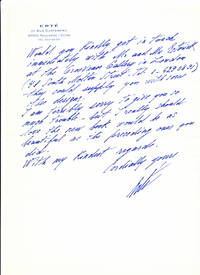 ERTÉ
Would you kindly get in touch,
immediately with Mr. and Mrs Estorick,
at the Grosvenor Gallery in London
(48 South Molton Street. Tel. 1-629-0891)
They could supply you with some
designs.
I am terribly sorry to give you so
much trouble, but I really should
love the new book would be as
beautiful as the preceding ones you
did.
With my kindest regards.
Cordially yours
Erté